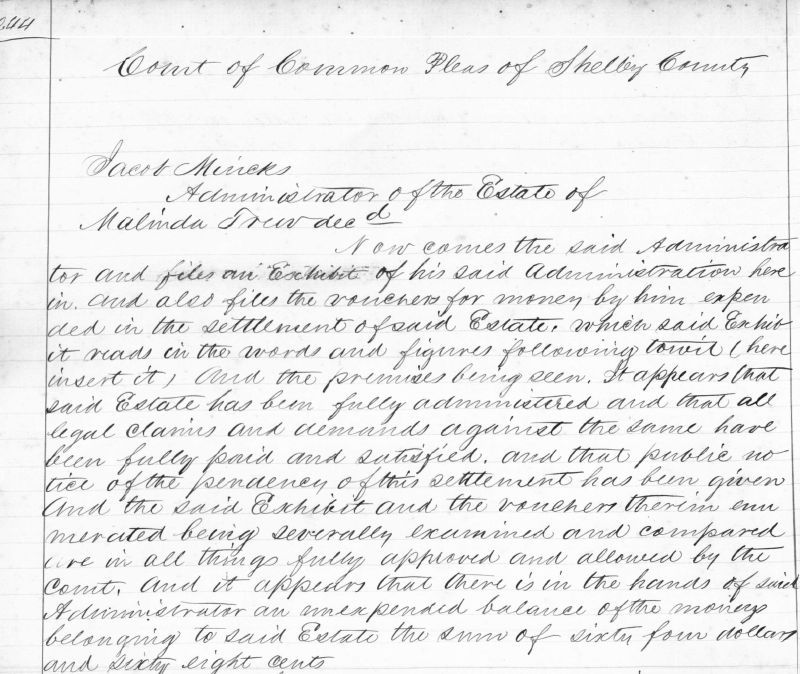 244
Court of Common Pleas of Shelby County
Jacob Mincks
Administrator of the Estate of
Malinda Treu decd
Now comes the said Administra
tor and files an Exhibit of his said Administration here
in. And also files the vouchers for money by him expen
ded in the settlement of said Estate. which said Exhib
it reads in the words and figures following towit (here
insert it) And the premises being seen. It appears that
said Estate has been fully administered and that all
legal claims and demands against the same have
been fully paid and satisfied. and that public no
tice of the pendency of this settlement has been given
And the said Exhibit and the vouchers therein enu
merated being severally examined and compared
are in all things fully approved and allowed by the
Court. And it appears that there is in the hands of said
Administrator an unexpended balance of the moneys
belonging to said Estate the sum of sixty four dollars
and sixty eight cents